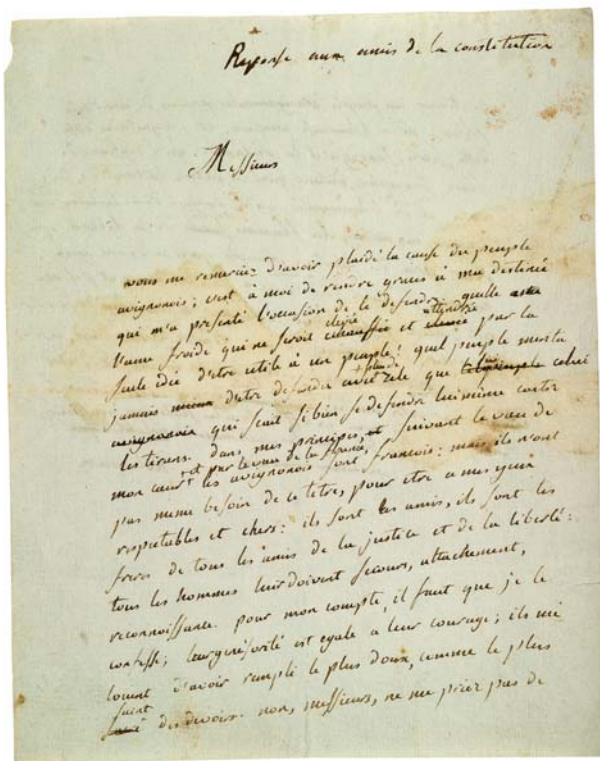 Reponse aux amis de la constitution
Messieurs
vous me remerciez d'avoir plaidé la cause du peuple
avignonois; c'est à moi de rendre graces à ma destinée
qui m'a presenté l'occasion de le defendre. quelle
élevée attendrie
l'ame froide qui ne seroit echauffée et par la
seule idée d'etre utile à un peuple! quel peuple merita
jamais d'etre defendu avec plus de zèle que celui
qui scait si bien se defendre lui même contre
les tirans. dans mes principes, suivant le vœu de
et par le vœu de la france,
mon cœur les avignonois sont françois: mais ils n'ont
pas meme besoin de ce titre, pour etre a mes yeux
respectables et chers: ils sont les amis, ils sont les
freres de tous les amis de la justice et de la liberté:
tous les hommes leur doivent secours, attachement,
reconnoissance. pour mon compte, il faut que je le
confesse; leur générosité est egale a leur courage; ils me
louent d'avoir rempli le plus doux, comme le plus
saint
des devoirs. non, messieurs, ne me priez pas de